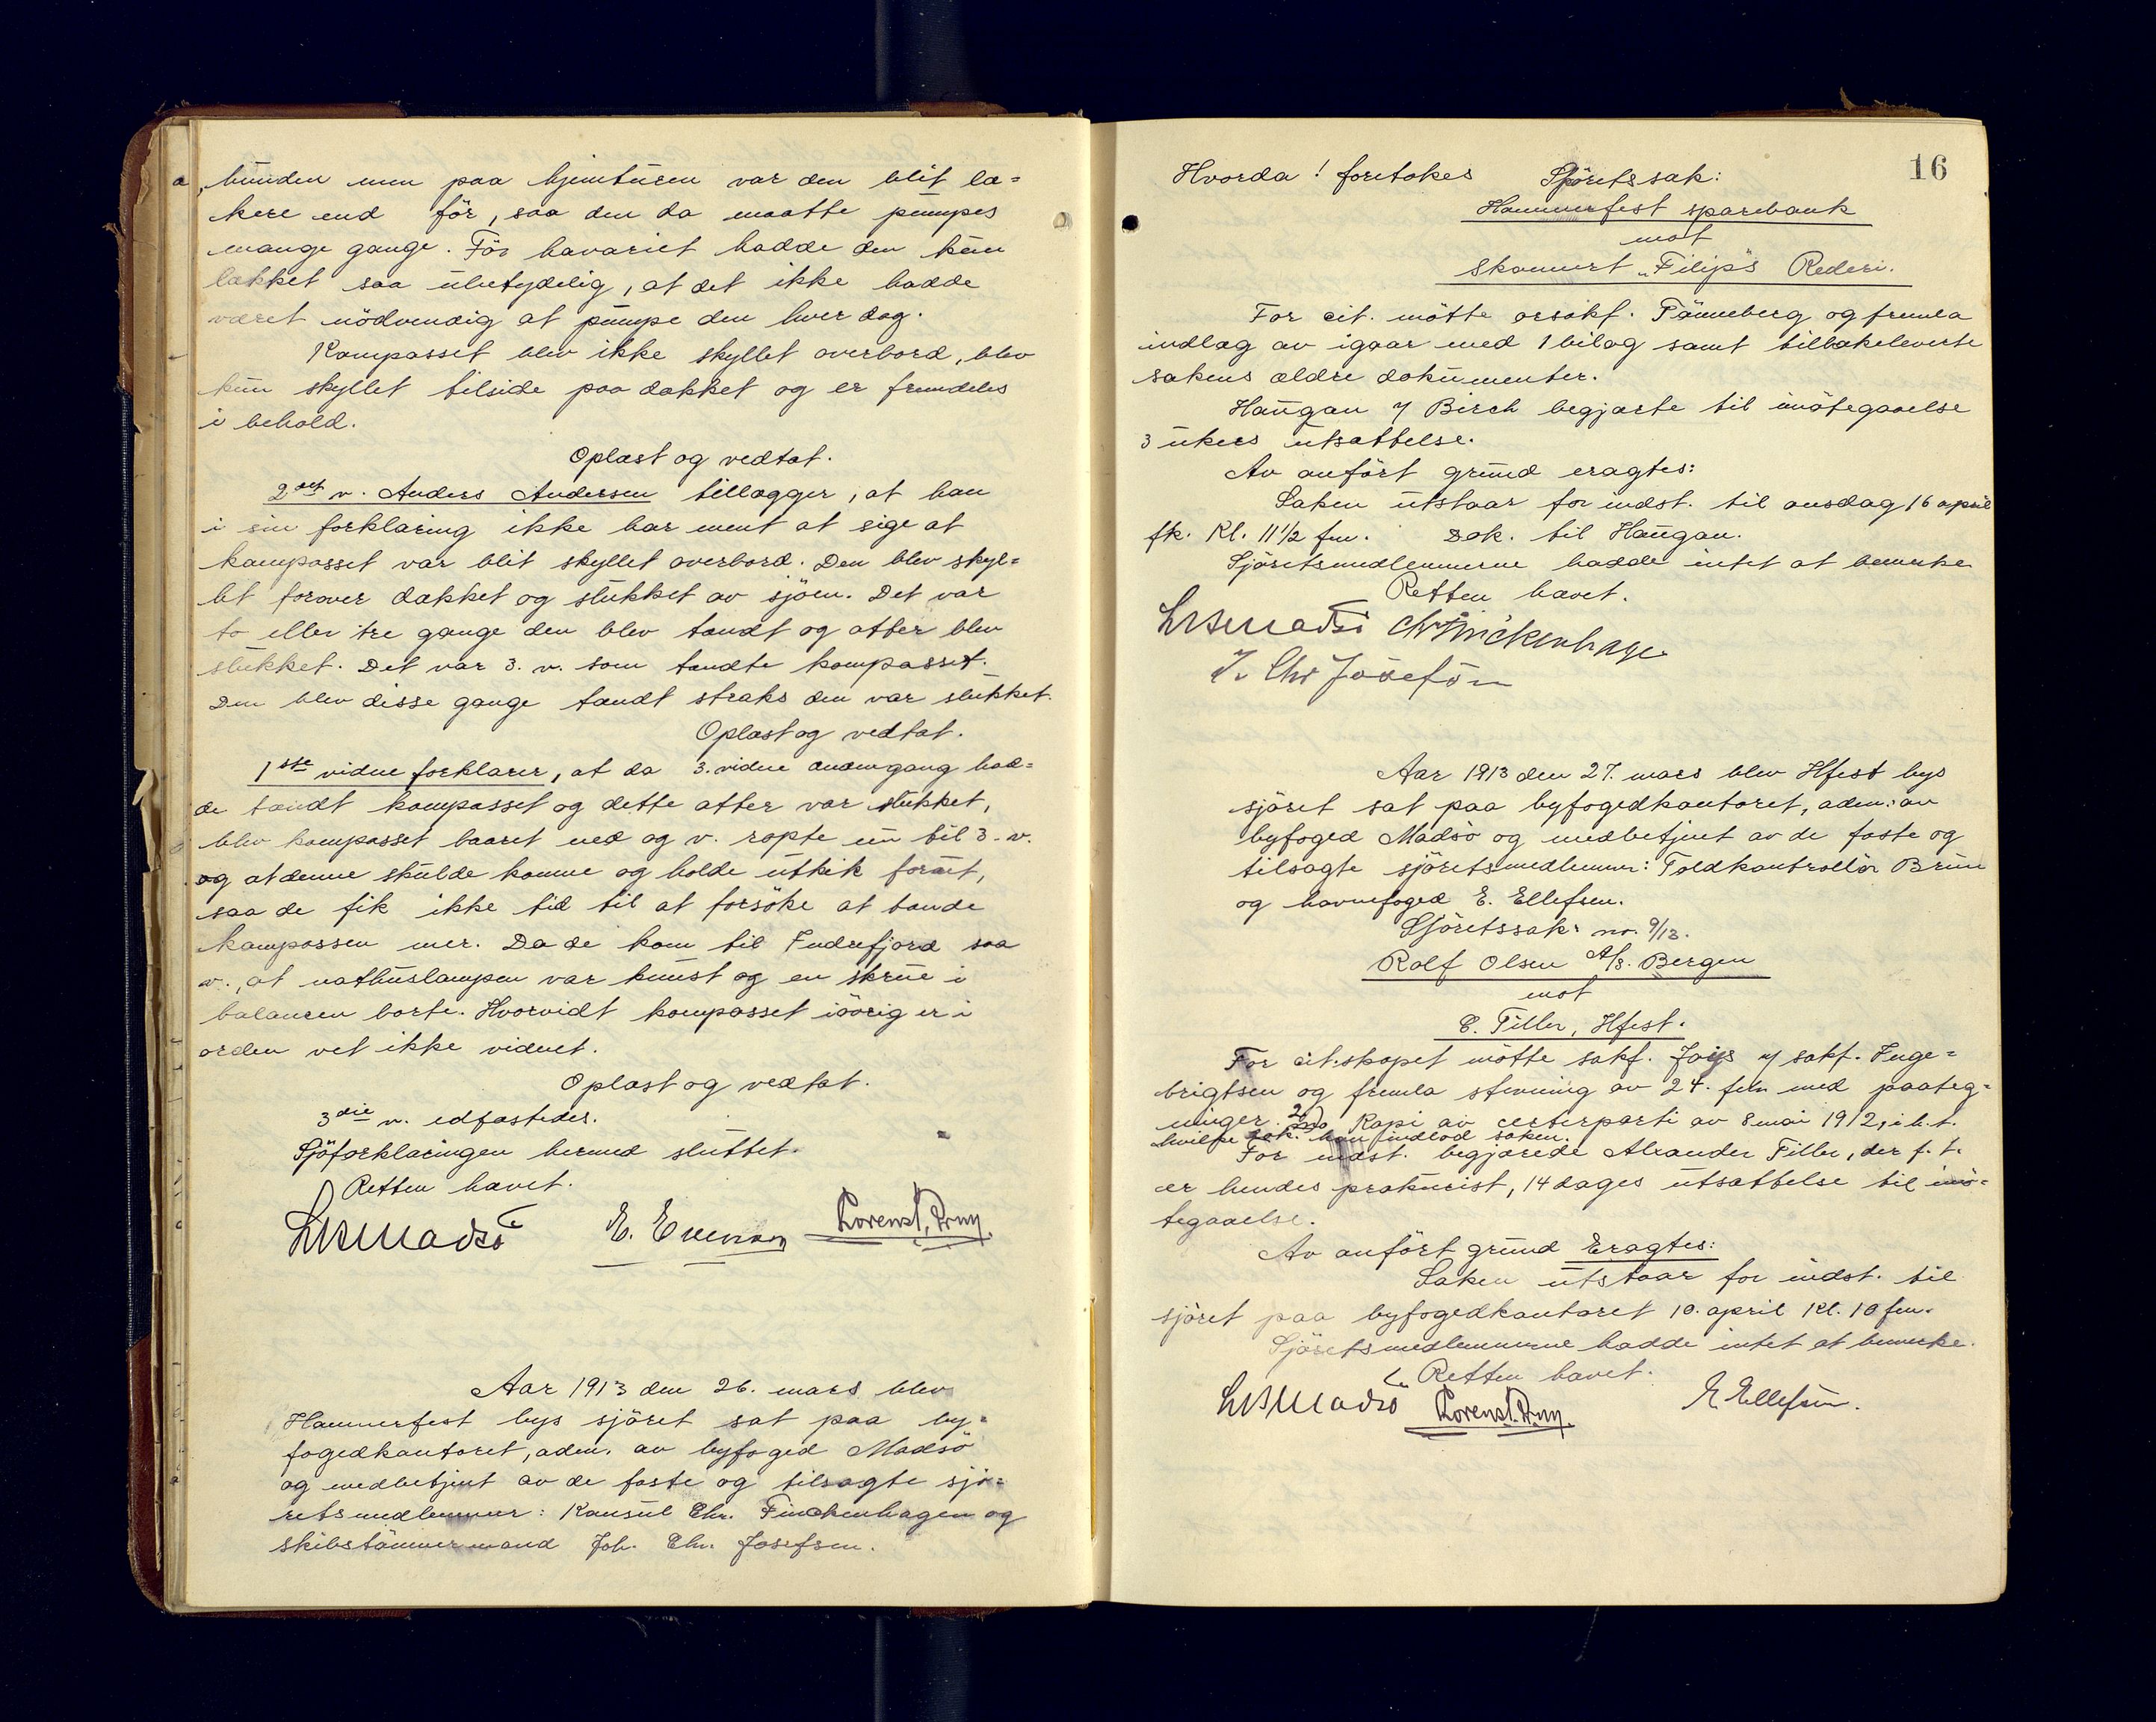 bunden men paa hjemturen var den blit læ=
kere end för, saa den da maatte pumpes
mange gange. För havariet hadde den kun
lækket saa ubetydelig, at det ikke hadde
været nödvendig at pumpe den hver dag.
Kompasset blev ikke skyllet overbord, blev
kun skyllet tilside paa dækket og er fremdeles
i behold.
Oplæst og vedtat.
2det v. Anders Andersen tillægger, at han
i sin forklaring ikke har ment at sige at
kompasset var blit skyllet overbord. Den blev skyl=
let forover dækket og slukket av sjöen. Det var
to eller tre gange den blev tændt og atter blev
slukket. Det var 3. v. som tændte kompasset.
Den blev disse gange tændt straks den var slukket.
Oplæst og vedtat.
1ste vidne forklarer, at da 3. vidne anden gang had=
de tændt kompasset og dette atter var slukket,
blev kompasset baaret ned og v. ropte nu til 3. v.
og at denne skulde komme og holde utkik forut,
saa de fik ikke tid til at forsöke at tænde
kompassen mer. Da de kom til Indrefjord saa
v., at nathuslampen var knust og en skrue i
balancen borte. Hvorvidt kompasset iövrig er i
orden vet ikke vidnet.
Oplæst og vedtat.
3die v. edfæstedes.
Sjöforklaringen hermed sluttet.
Retten hævet.
LMMadsö Lorentz Bruu
Aar 1913 den 26. mars blev
Hammerfest bys sjöret sat paa by=
fogedkontoret, adm. av byfoged Madsö
og medbetjent av de faste og tilsagte sjö=
retsmedlemmer: Konsul Chr. Finckenhagen og
skibstömmermand Joh. Chr. Josefsen.
16
Hvorda! foretokes Sjöretssak:
Hammerfest sparebank
mot
skonnert „Filip"s Rederi.
For cit. mötte orsakf. Tönneberg og fremla
indlæg av igaar med 1 bilag samt tilbakeleverte
sakens ældre dokumenter.
Haugan f Birch begjærte til imötegaaelse
3 ukers utsættelse.
Av anfört grund eragtes:
Saken utstaar for indst. til onsdag 16 april
fk. Kl. 11 1/2 fm. Dok. til Haugan.
Sjöretsmedlemmerne hadde intet at bemerke
Retten hævet.
LMMadsö Chr Finckenhagen
J. Chr Josefsen
Aar 1913 den 27. mars blev Hfest bys
sjöret sat paa byfogedkontoret, adm. av
byfoged Madsö og medbetjent av de faste og
tilsagte sjöretsmedlemmer: Toldkontrollör Bruu
og havnefoged E. Ellefsen.
Sjöretssak no. 9/13.
Rolf Olsen A/S. Bergen
mot
C. Tiller, Hfest.
For cit.skapet mötte sakf. f sakf. Inge=
brigtsen og fremla stevning av 24. febr. med paateg=
ninger. 2) Kopi av certeparti av 8 mai 1912, i h. t.
hvilke dok. han indlod saken.
For indst. begjærede Alexander Tiller, der f. t.
er hendes prokurist, 14 dages utsættelse til imö=
tegaaelse.
Av anfört grund Eragtes:
Saken utstaar for indst. til
sjöret paa byfogedkontoret 10. april Kl. 10 fm.
Sjöretsmedlemmerne hadde intet at bemerke.
Retten hævet.
LMMadsö Lorentz Bruu E Ellefsen.